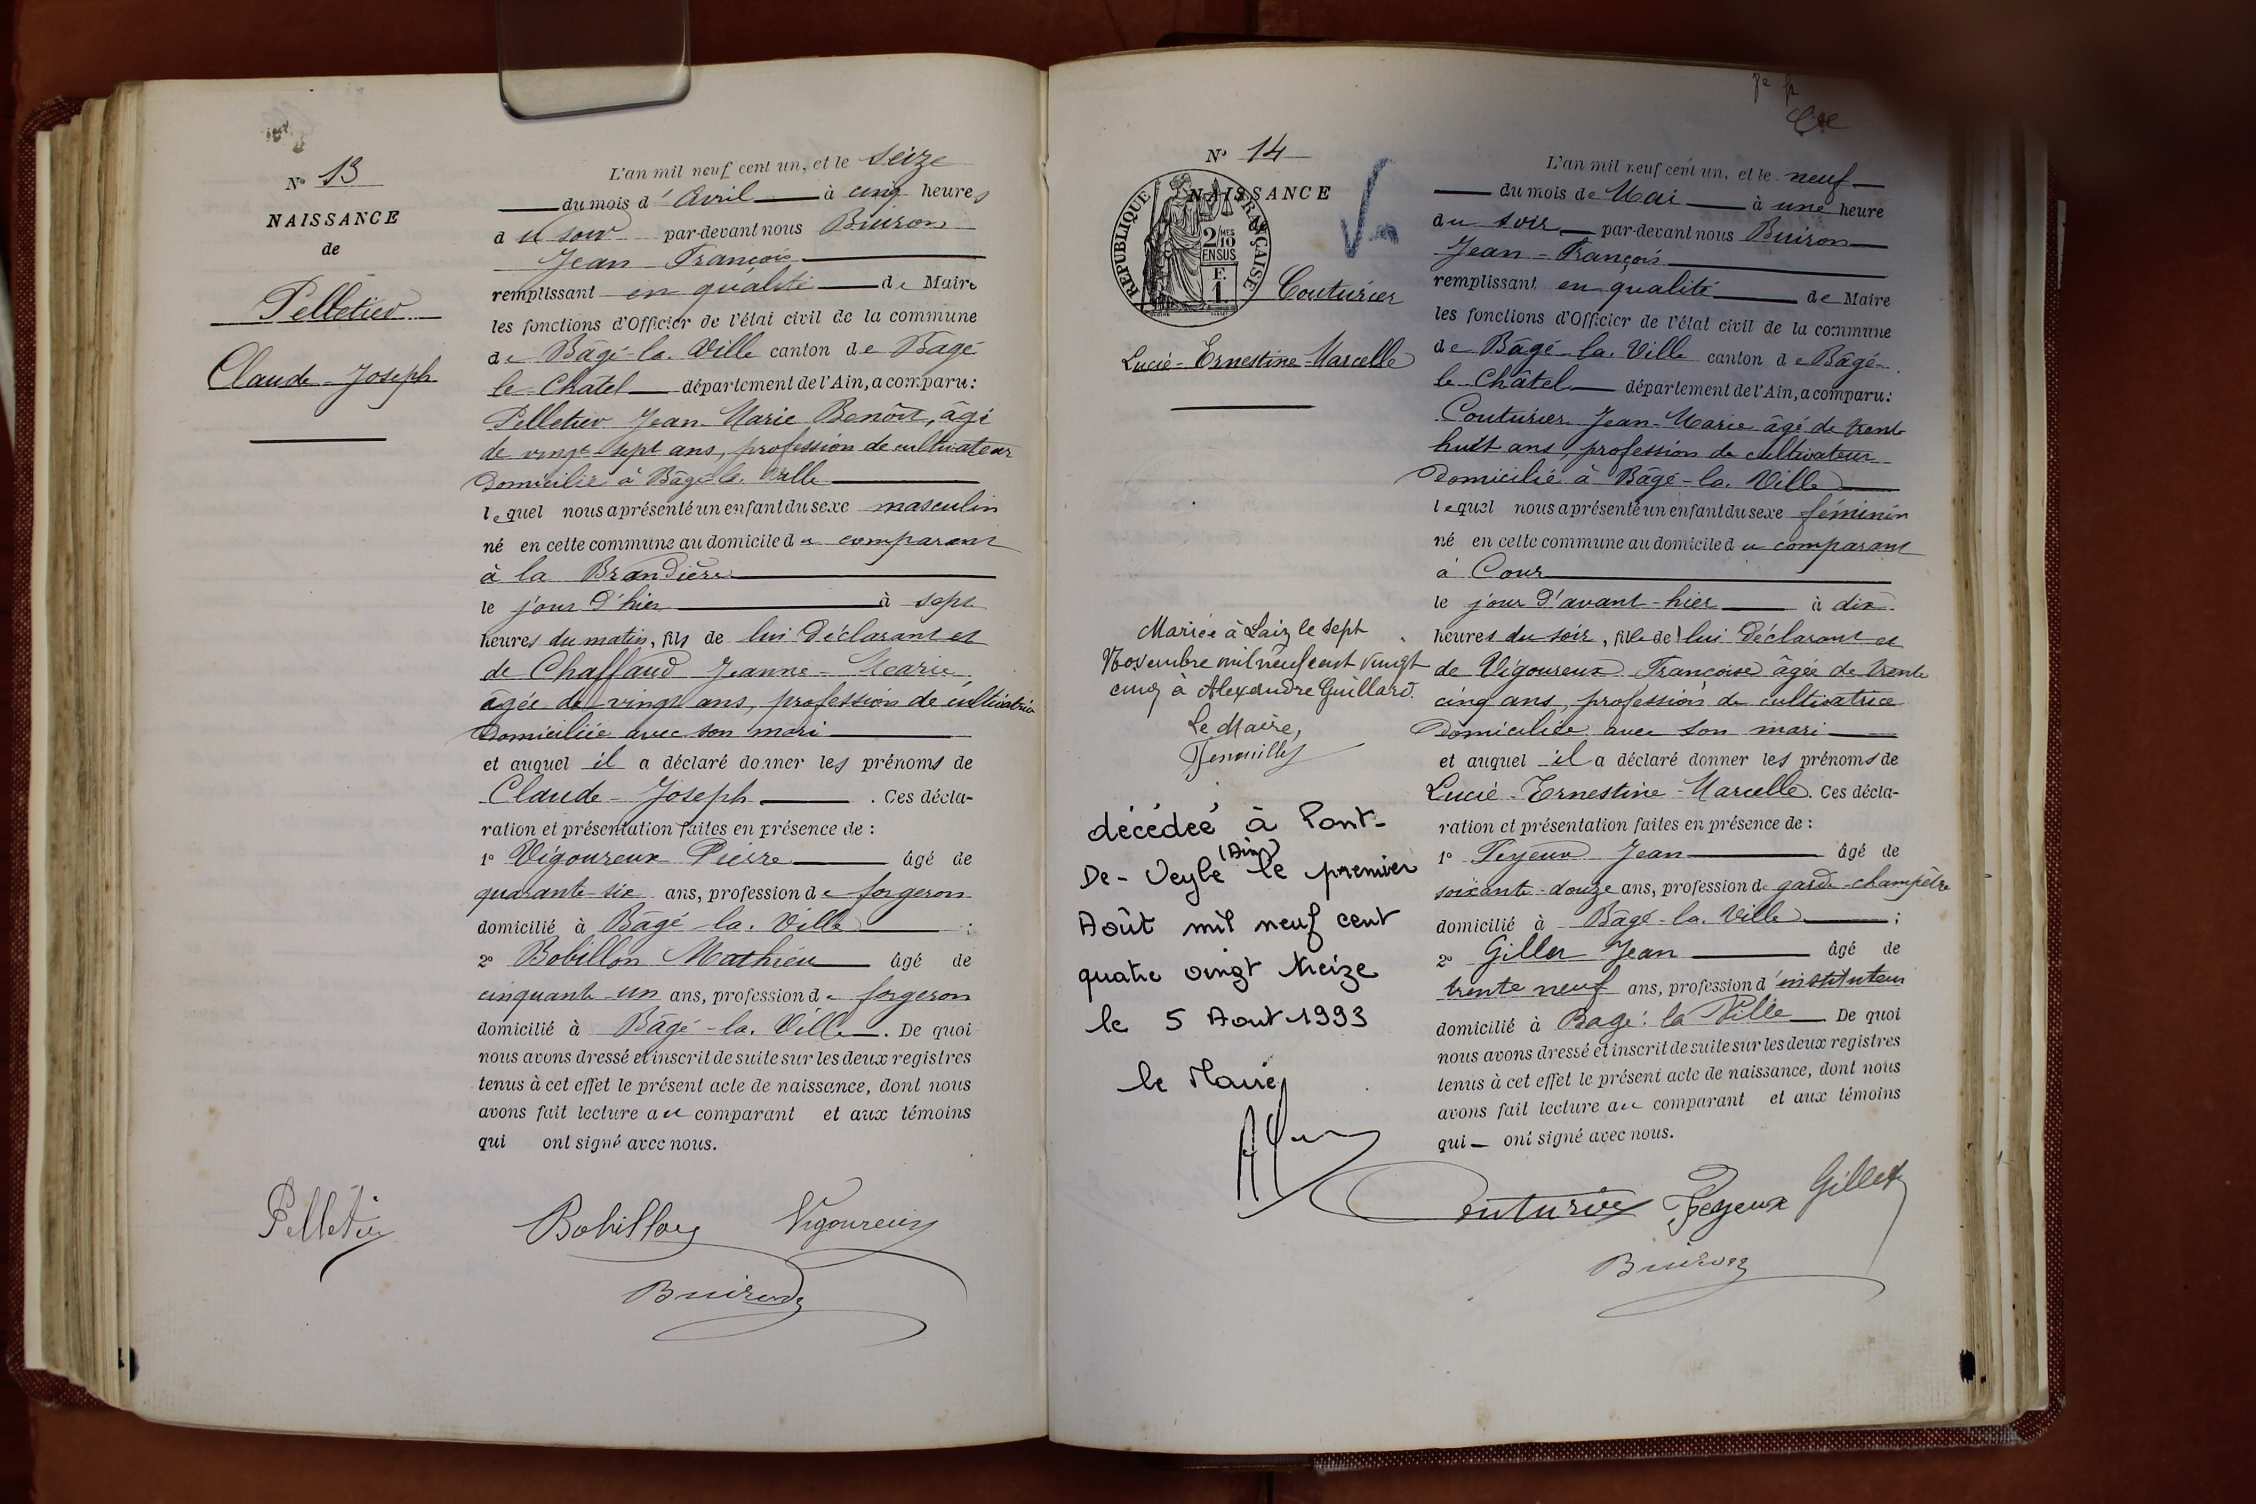 N° 13
NAISSANCE
de
Pelletier
Claude-Joseph
L'an mil neuf cent un, et le seize
du mois d'Avril à cinq heures
du soir par-devant nous Buiron
Jean-François
remplissant en qualité de Maire
les fonctions d'Officier de l'état civil de la commune
de Bâgé-la-Ville canton de Bâgé
le-Châtel département de l'Ain, a comparu:
Pelletier Jean-Marie Benoît, âgé
de vingt-sept ans, profession de cultivateur
domicilié à Bâgé-la-Ville
lequel nous a présenté un enfant du sexe masculin
né en cette commune au domicile du comparant
à la Brandière
le jour d'hier à sept
heures du matin, fils de lui déclarant et
de Chaffaud Jeanne-Marie,
âgée de vingt ans, profession de cultivatrice
domiciliée avec son mari
et auquel il a déclaré donner les prénoms de
Claude-Joseph. Ces décla-
ration et présentation faites en présence de :
1° Vigoureux Pierre âgé de
quarante-six ans, profession de forgeron
domicilié à Bâgé-la-Ville ;
2° Bobillon Mathieu âgé de
cinquante-un ans, profession de forgeron
domicilié à Bâgé-la-Ville. De quoi
nous avons dressé et inscrit de suite sur les deux registres
tenus à cet effet le présent acte de naissance, dont nous
avons fait lecture au comparant et aux témoins
qui ont signé avec nous.
Pelletier Bobillon Vigoureux
Buiron
N° 14
NAISSANCE
RÉPUBLIQUE FRANÇAISE
2/10 MES
EN SUS
F.
1.
Couturier
Lucie-Ernestine-Marcelle
Mariée à Laiz le sept
Novembre mil neuf cent vingt
cinq à Alexandre Guillard.
Le Maire,
décédée à Pont-
De-Veyle (Ain) le premier
Août mil neuf cent
quatre vingt treize
le 5 Aout 1993
le Maire
L'an mil neuf cent un, et le neuf
du mois de Mai à une heure
du soir par-devant nous Buiron
Jean-François
remplissant en qualité de Maire
les fonctions d'Officier de l'état civil de la commune
de Bâgé-la-Ville canton de Bâgé-
le-Châtel département de l'Ain, a comparu:
Couturier Jean-Marie âgé de trente
huit ans, profession de cultivateur
domicilié à Bâgé-la-Ville
lequel nous a présenté un enfant du sexe féminin
né en cette commune au domicile du comparant
à Cour
le jour d'avant-hier à dix
heures du soir, fille de lui déclarant et
de Vigoureux Françoise âgée de trente
cinq ans, profession de cultivatrice
domiciliée avec son mari
et auquel il a déclaré donner les prénoms de
Lucie-Ernestine-Marcelle. Ces décla-
ration et présentation faites en présence de :
1° Feyeux Jean âgé de
soixante-douze ans, profession de garde-champêtre
domicilié à Bâgé-la-Ville ;
2° Gillet Jean âgé de
trente neuf ans, profession d'instituteur
domicilié à Bagé-la Ville De quoi
nous avons dressé et inscrit de suite sur les deux registres
tenus à cet effet le présent acte de naissance, dont nous
avons fait lecture au comparant et aux témoins
qui ont signé avec nous.
Couturier Feyeux Gillet
Buiron